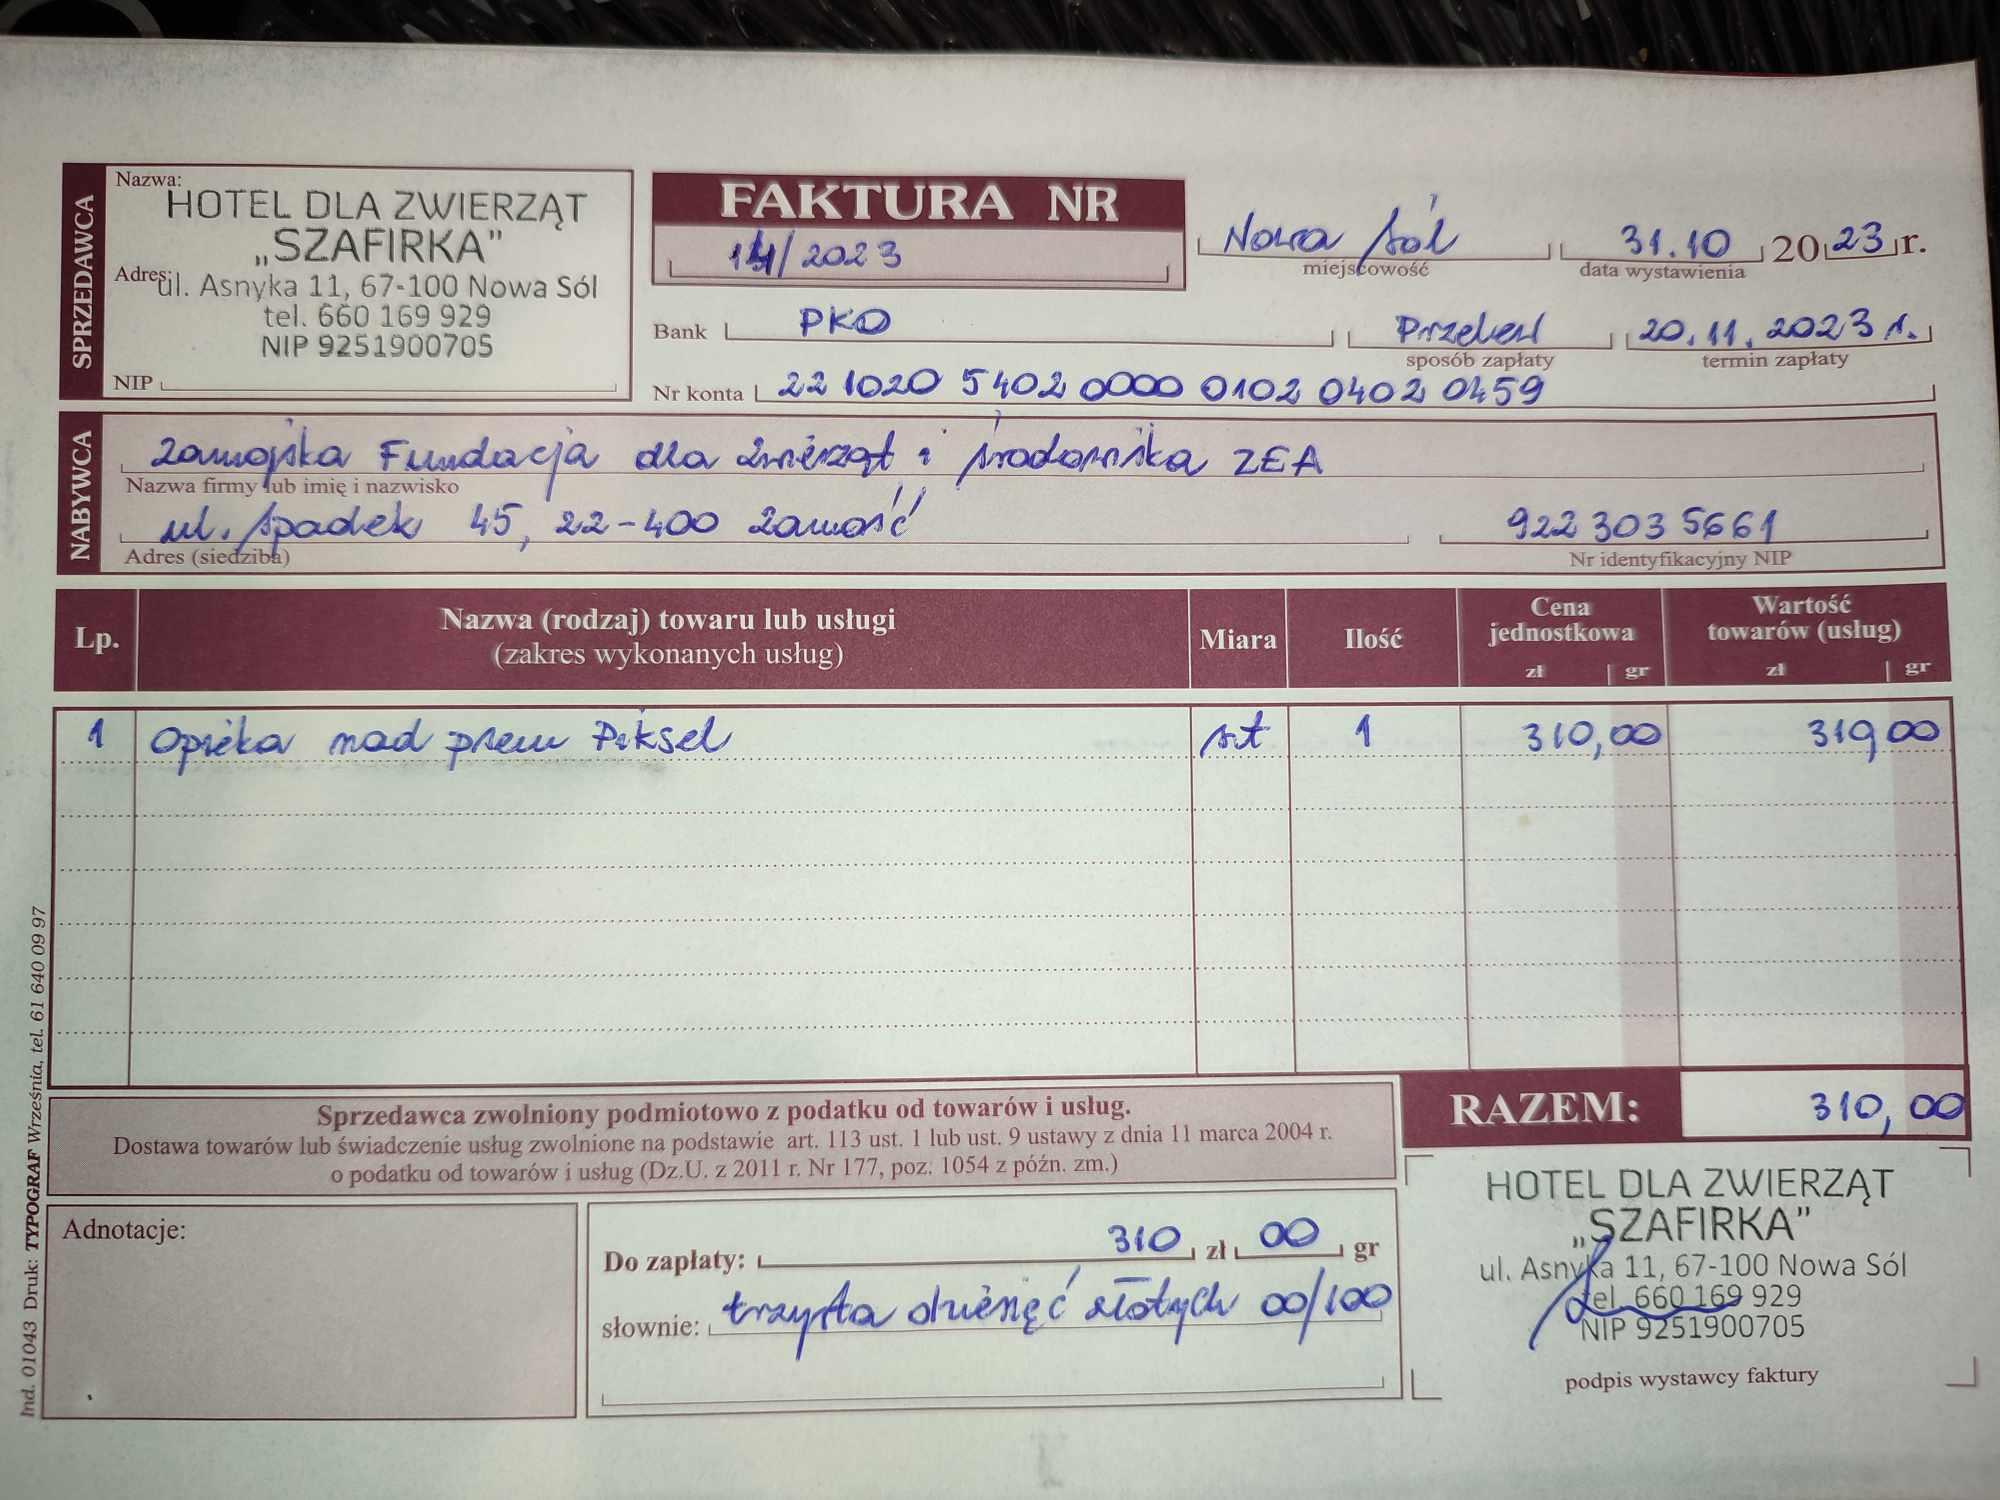 SPRZEDAWCA
Nazwa:
HOTEL DLA ZWIERZĄT
„SZAFIRKA”
Adres: ul. Asnyka 11, 67-100 Nowa Sól
tel. 660 169 929
NIP 9251900705
NIP
FAKTURA NR
/2023
Nowa Sól
miejscowość
31.10 2023 r.
data wystawienia
Bank PKO
Przelew
sposób zapłaty
20.11.2023 r.
termin zapłaty
Nr konta 22 1020 5402 0000 0102 0402 0459
NABYWCA
Zamojska Fundacja dla Zwierząt i Środowiska ZEA
Nazwa firmy lub imię i nazwisko
ul. Spadek 45, 22-400 Zamość
Adres (siedziba)
922 303 5661
Nr identyfikacyjny NIP
Lp. Nazwa (rodzaj) towaru lub usługi (zakres wykonanych usług) Miara Ilość Cena jednostkowa zł gr Wartość towarów (usług) zł gr
1 Opieka nad psem Piksel szt 1 310,00 310,00
RAZEM: 310,00
Sprzedawca zwolniony podmiotowo z podatku od towarów i usług.
Dostawa towarów lub świadczenie usług zwolnione na podstawie art. 113 ust. 1 lub ust. 9 ustawy z dnia 11 marca 2004 r.
o podatku od towarów i usług (Dz.U. z 2011 r. Nr 177, poz. 1054 z późn. zm.)
Adnotacje:
Do zapłaty: 310 zł 00 gr
słownie: trzysta dziesięć złotych 00/100
HOTEL DLA ZWIERZĄT
„SZAFIRKA”
ul. Asnyka 11, 67-100 Nowa Sól
tel. 660 169 929
NIP 9251900705
podpis wystawcy faktury
Ind. 01043 Druk: TYPOGRAF Września, tel. 61 640 09 97